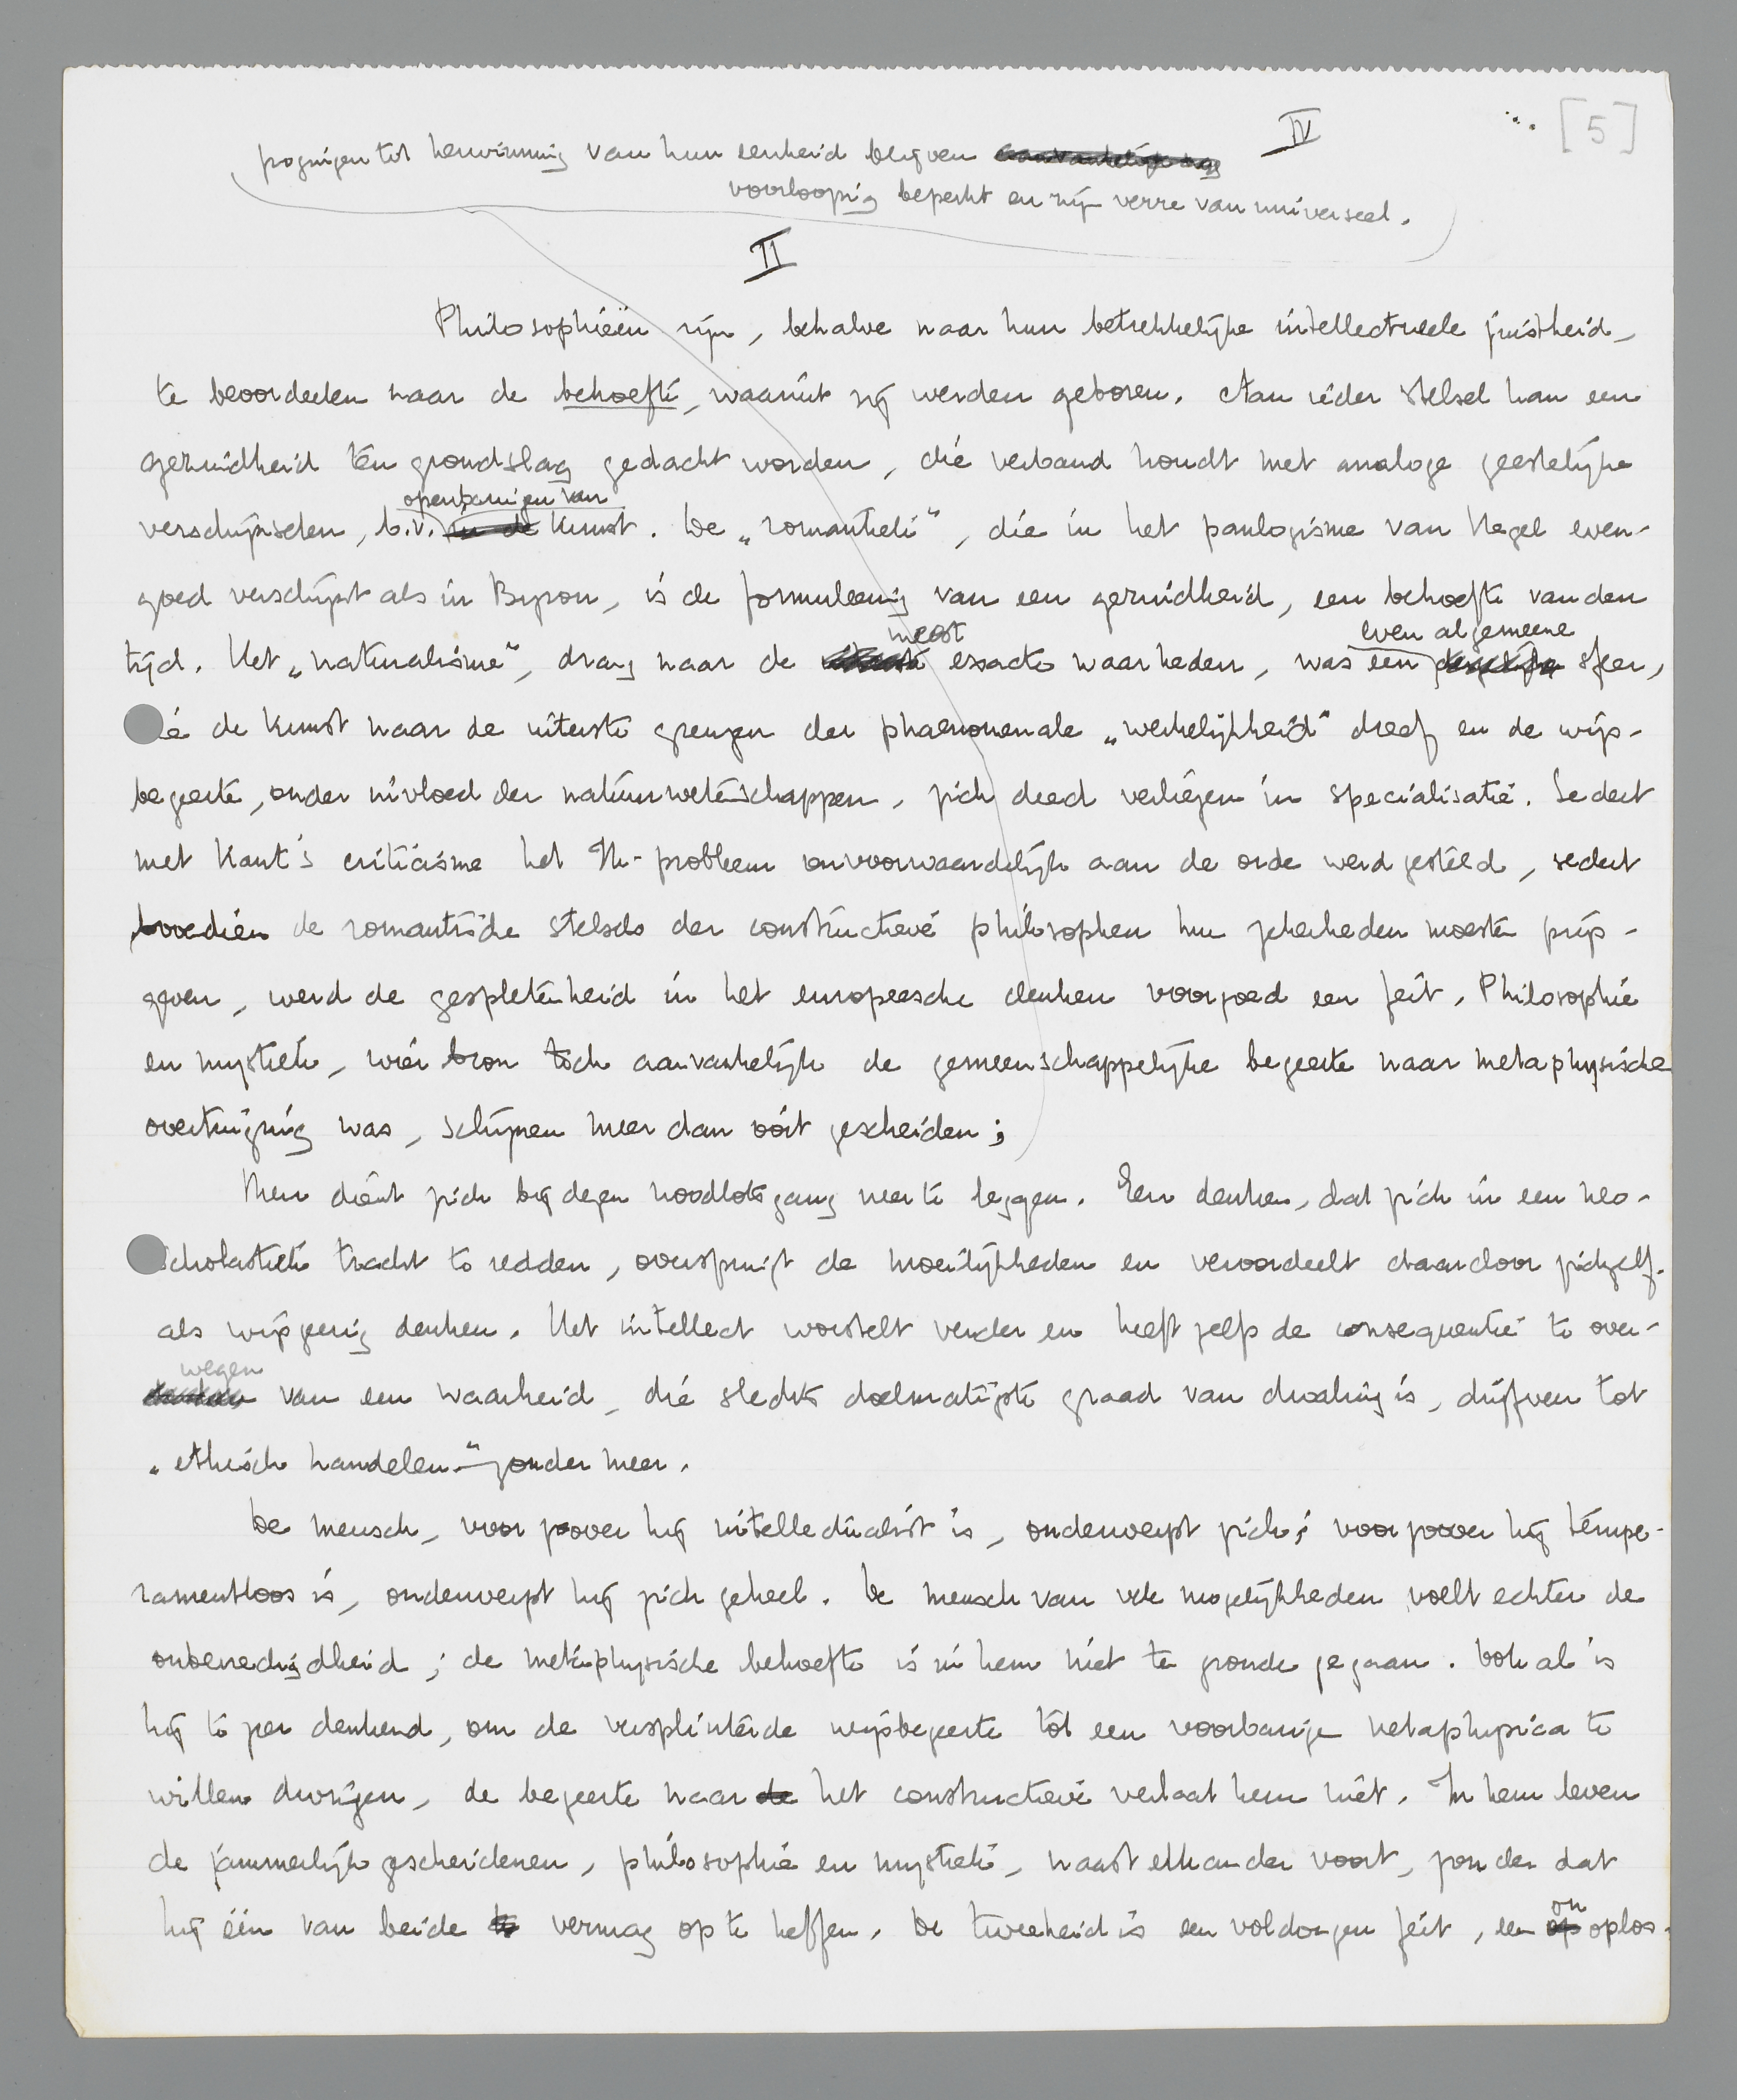 IV
[5]
pogingen tot herwinning van hun eenheid blijven
voorloopig beperkt en zijn verre van universeel.
II
Philosophieën zijn, behalve naar hun betrekkelijke intellectueele juistheid,
te beoordeelen naar de behoefte, waaruit zij werden geboren. Aan ieder stelsel kan een
gezindheid ten grondslag gedacht worden, die verband houdt met analoge geestelijke
openbaringen van
verschijnselen, b.v. in de kunst. De „romantiek", die in het panlogisme van Hegel even-
goed verschijnt als in Byron, is de formuleering van een gezindheid, een behoefte van den
meest even algemeene
tijd. Het „naturalisme", drang naar de exacte waarheden, was een sfeer,
die de kunst naar de uiterste grenzen der phaenomenale „werkelijkheid" dreef en de wijs-
begeerte, onder invloed der natuurwetenschappen, zich deed verliezen in specialisatie. Sedert
met Kant's criticisme het Ik-probleem onvoorwaardelijk aan de orde werd gesteld, sedert
bovendien de romantische stelsels der constructieve philosophen hun zekerheden moesten prijs-
geven, werd de gespletenheid in het europeesche denken voorgoed een feit. Philosophie
en mystiek, wier bron toch aanvankelijk de gemeenschappelijke begeerte naar metaphysische
overtuiging was, schijnen meer dan ooit gescheiden;
Men dient zich bij dezen noodlotsgang neer te leggen. Een denken, dat zich in een neo-
scholastiek tracht te redden, overspringt de moeilijkheden en veroordeelt daardoor zichzelf
als wijsgeerig denken. Het intellect worstelt verder en heeft zelfs de consequentie te over-
wegen
van een waarheid, die slechts doelmatigste graad van dwaling is, drijfveer tot
„ethisch handelen" zonder meer.
De mensch, voor zoover hij intellectualist is, onderwerpt zich; voor zoover hij tempe-
ramentloos is, onderwerpt hij zich geheel. De mensch van vele mogelijkheden voelt echter de
onbevredigdheid; de metaphysische behoefte is in hem niet te gronde gegaan. Ook al is
hij te zeer denkend, om de versplinterde wijsbegeerte tot een voorbarige metaphysica te
willen dwingen, de begeerte naar de het constructieve verlaat hem niet. In hem leven
de jammerlijk gescheidenen, philosophie en mystiek, naast elkander voort, zonder dat
on
hij één van beide te vermag op te heffen. De tweeheid is een voldongen feit, een op oplos-